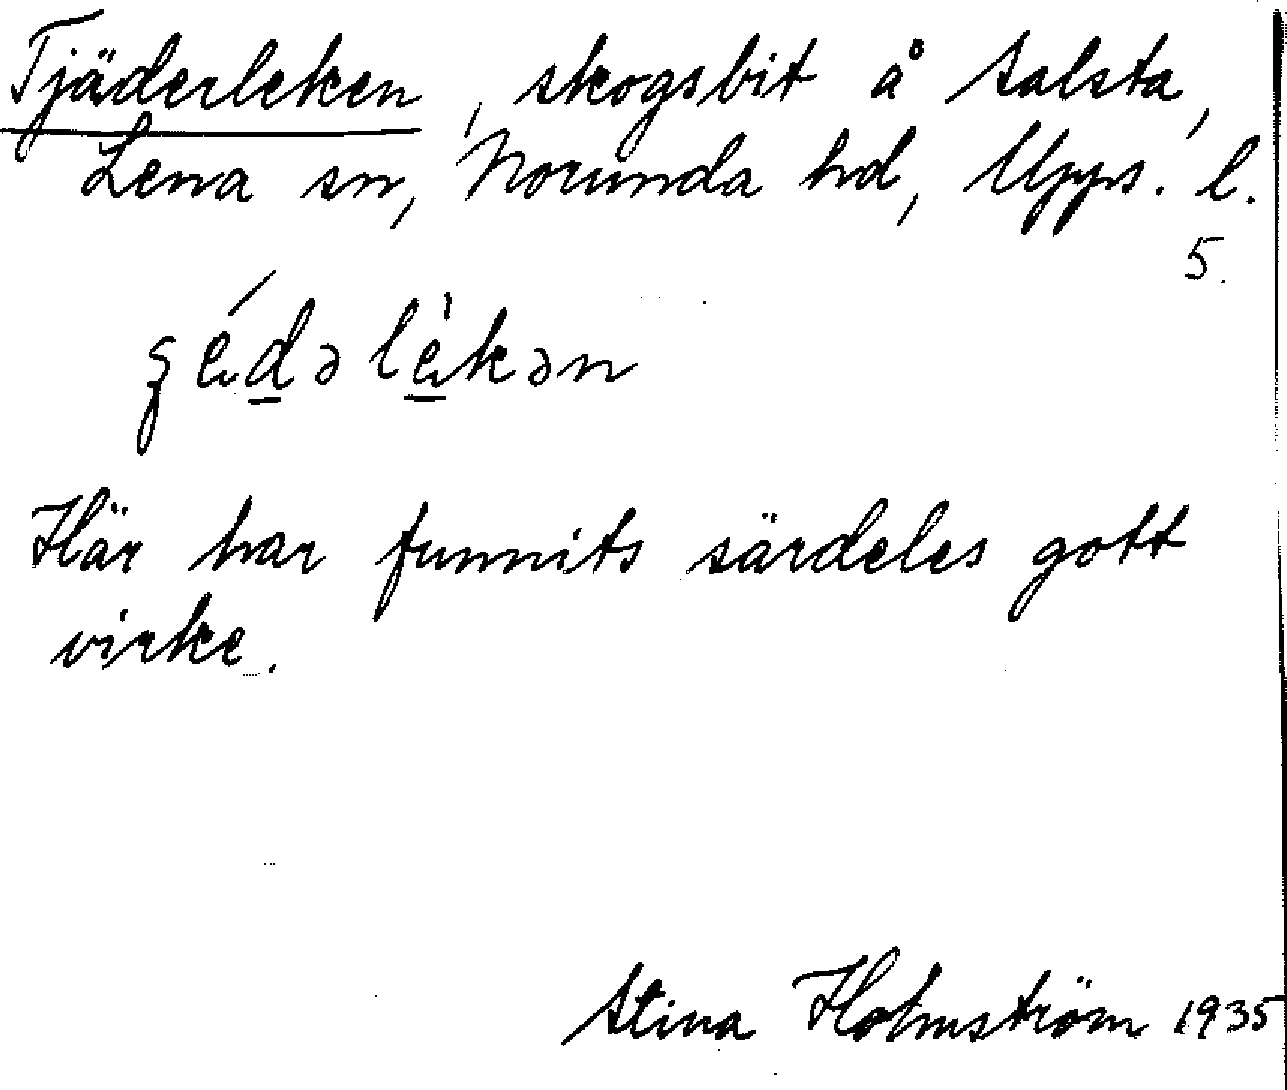 Tjäderleken, skogsbit å Salsta,
Lena sn, Norunda hd, Upps. l.
5.
Här har funnits särdeles gott
virke.
Stina Holmström 1935